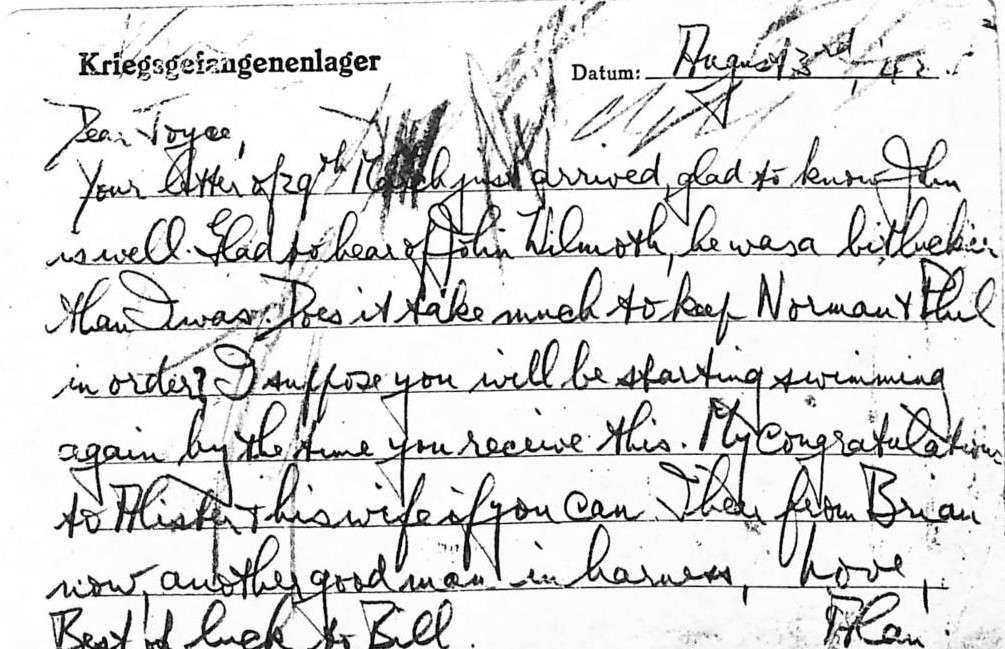 Kriegsgefangenenlager
Datum: August 3rd, 42.
Dear Joyce,
Your letter of 29th March just arrived, glad to know John
is well. Glad to hear of John Wilmoth, he was a bit luckier
than I was. Does it take much to keep Norman & Phil
in order? I suppose you will be starting swimming
again by the time you receive this. My Congratulations
to Alister & his wife if you can. I hear from Brian
now, another good man in harness, Love,
Best of luck to Bill. Alan.